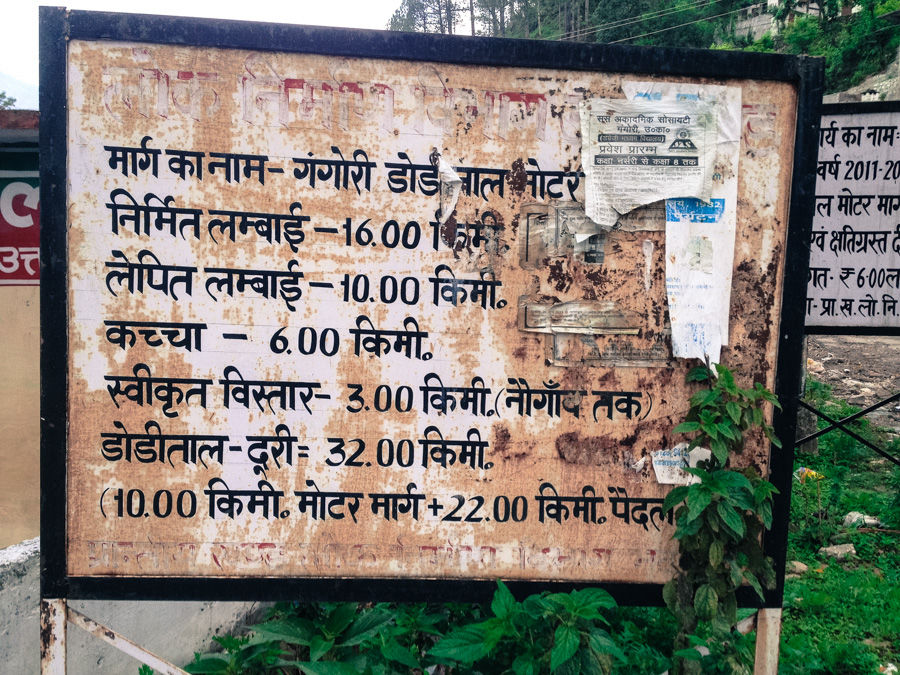 लोक निर्माण विभाग
मार्ग का नाम- गंगोरी डोडीताल मोटर
निर्मित लम्बाई - 16.00 किमी.
लेपित लम्बाई - 10.00 किमी.
कच्चा - 6.00 किमी.
स्वीकृत विस्तार- 3.00 किमी.(नौगाँव तक)
डोडीताल-दूरी= 32.00 किमी.
(10.00 किमी. मोटर मार्ग+22.00 किमी. पैदल
सूर्स अकादमिक सोसायटी
गंगोरी, उ०का०
प्रवेश प्रारम्भ
कक्षा नर्सरी से कक्षा 8 तक
पर्यटन
र्य का नाम=
वर्ष 2011-20
ल मोटर मार्ग
एवं क्षतिग्रस्त दी
गत- ₹6.00ल
- प्रा.ख.लो.नि.
उत्त